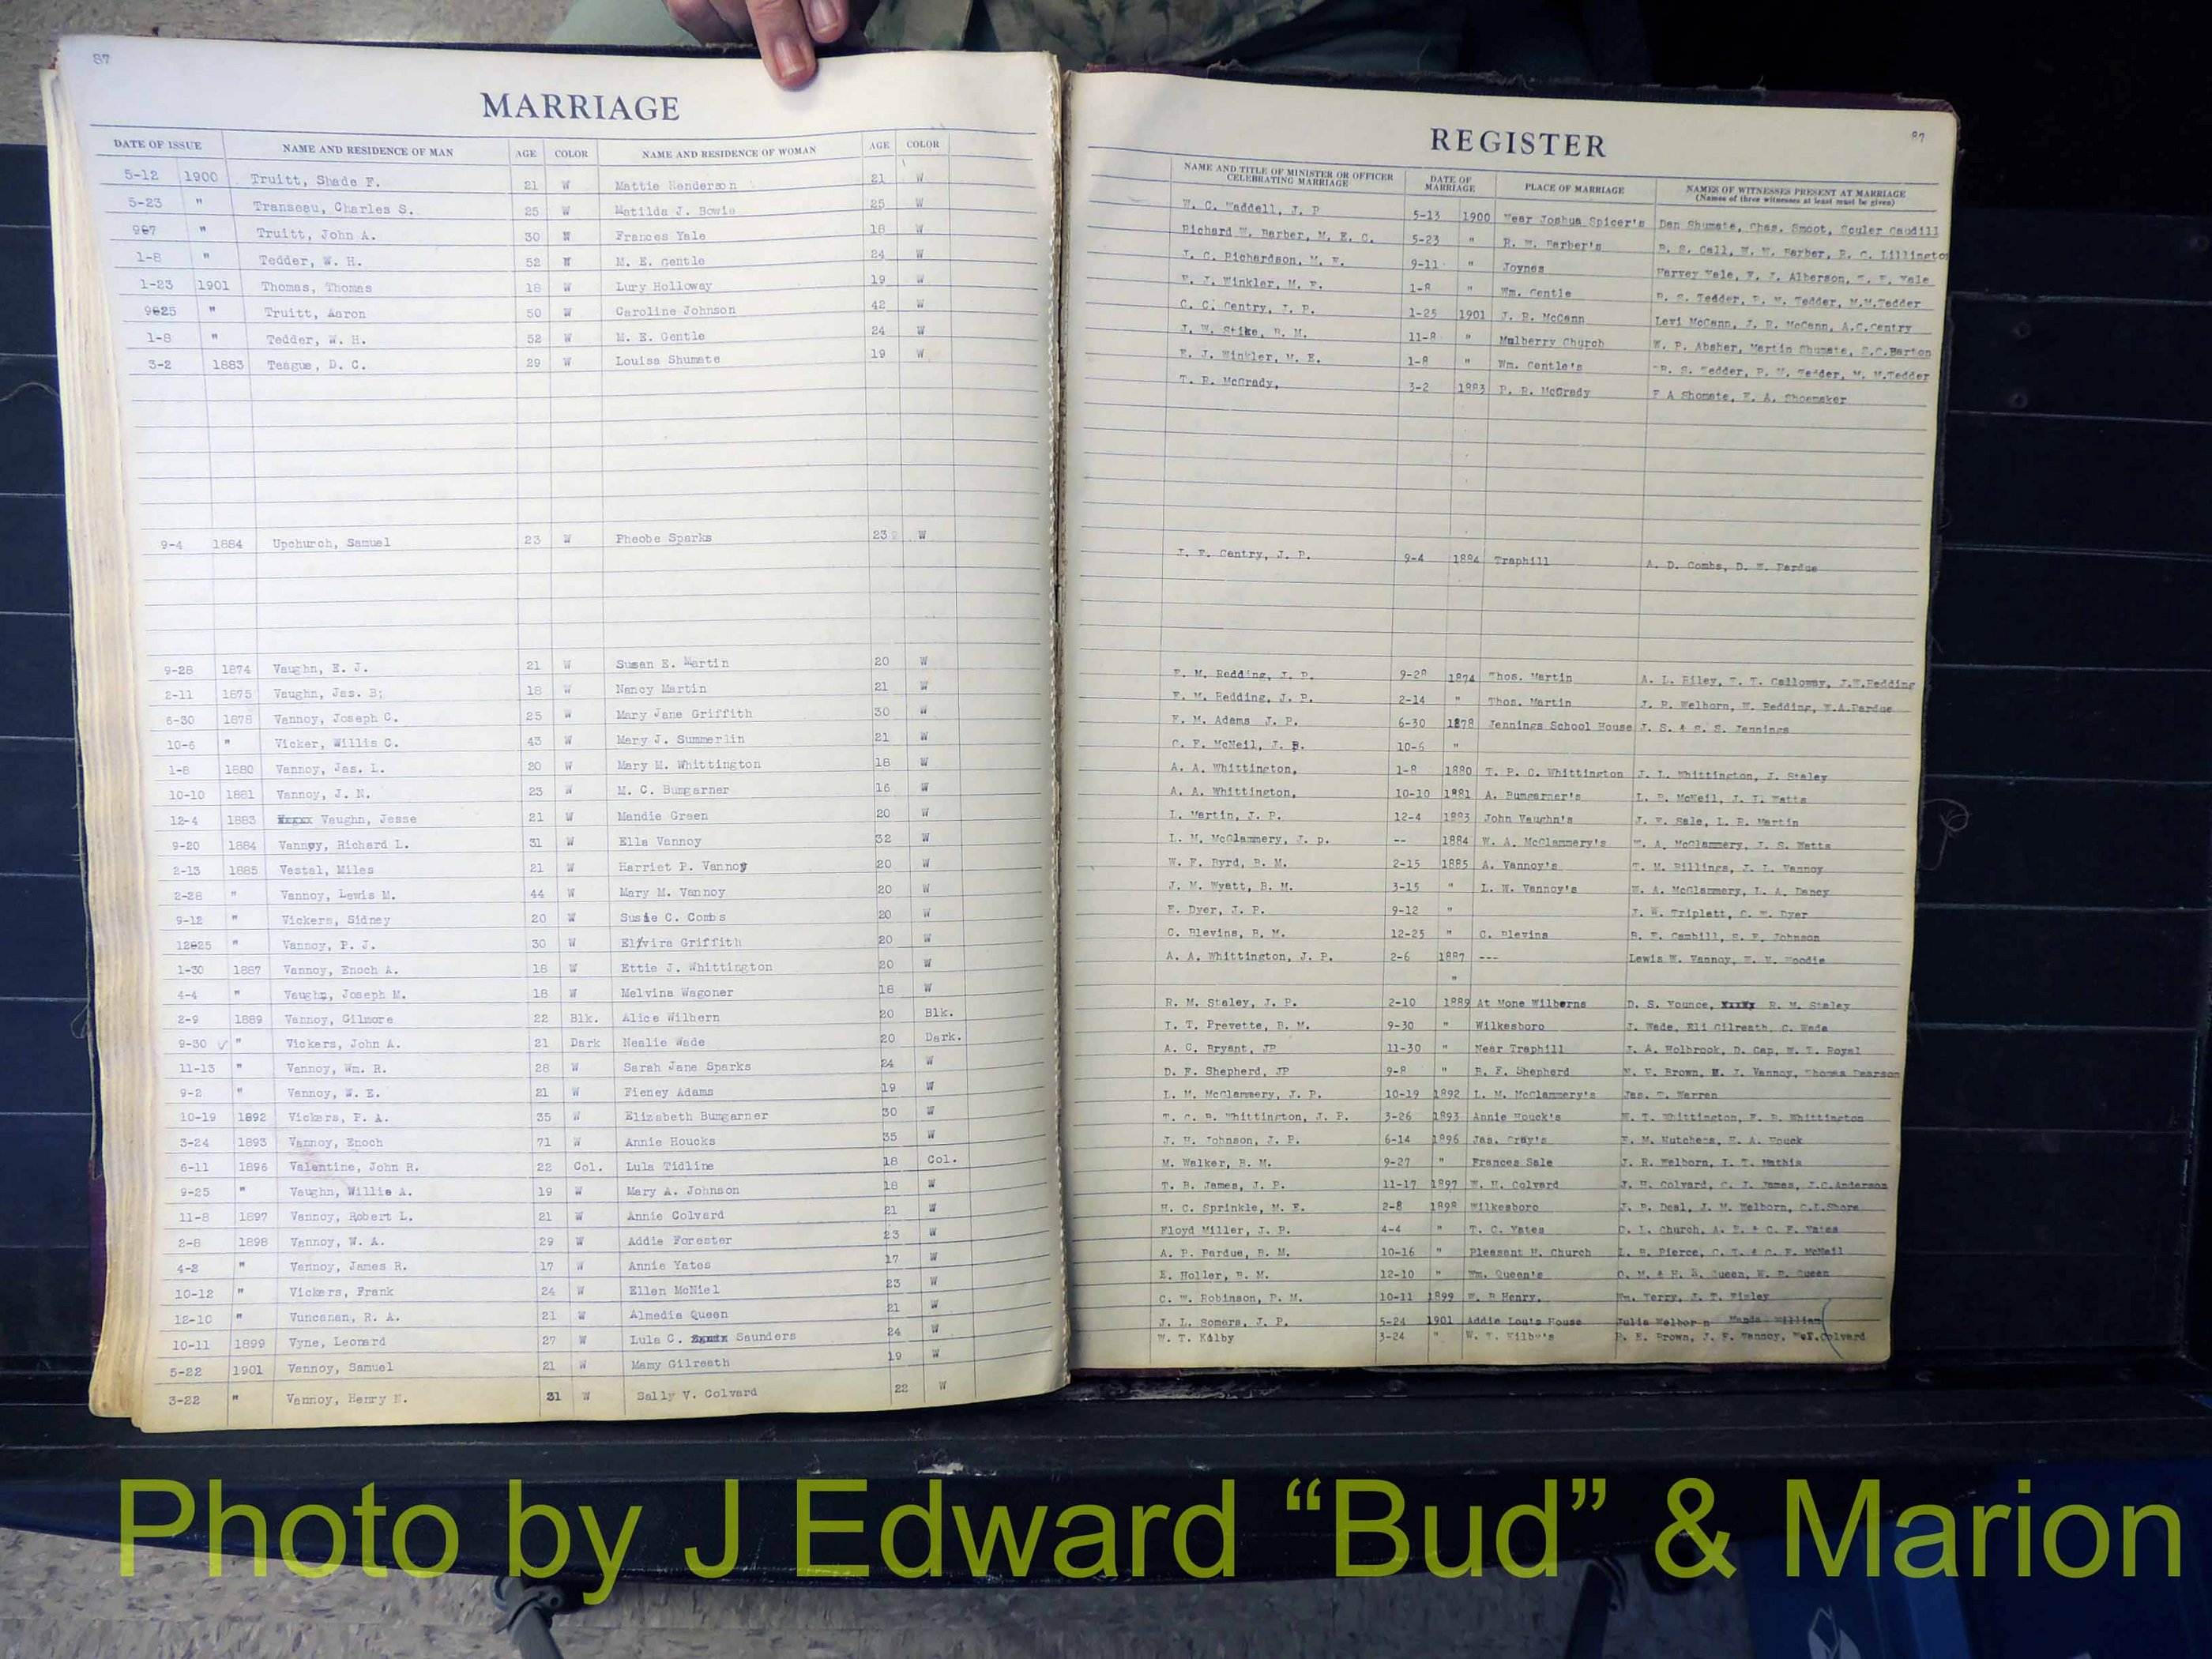 87
MARRIAGE
DATE OF ISSUE NAME AND RESIDENCE OF MAN AGE COLOR NAME AND RESIDENCE OF WOMAN AGE COLOR
5-12 1900 Truitt, Shade F. 21 W Mattie Henderson 21 W
5-23 " Transeau, Charles S. 25 W Matilda J. Bowie 25 W
987 " Truitt, John A. 30 W Frances Yale 18 W
1-8 " Tedder, W. H. 52 W M. E. Gentle 24 W
1-23 1901 Thomas, Thomas 18 W Lury Holloway 19 W
9825 " Truitt, Aaron 50 W Caroline Johnson 42 W
1-8 " Tedder, W. H. 52 W M. E. Gentle 24 W
3-2 1883 Teague, D. C. 29 W Louisa Shumate 19 W
9-4 1884 Upchurch, Samuel 23 W Pheobe Sparks 23 W
9-28 1874 Vaughn, E. J. 21 W Susan E. Martin 20 W
2-11 1875 Vaughn, Jas. B; 18 W Nancy Martin 21 W
6-30 1878 Vannoy, Joseph C. 25 W Mary Jane Griffith 30 W
10-6 " Vicker, Willis C. 43 W Mary J. Summerlin 21 W
1-8 1880 Vannoy, Jas. L. 20 W Mary M. Whittington 18 W
10-10 1881 Vannoy, J. N. 23 W M. C. Bumgarner 16 W
12-4 1883 Vaughn, Jesse 21 W Mandie Green 20 W
9-20 1884 Vannoy, Richard L. 31 W Ella Vannoy 32 W
2-13 1885 Vestal, Miles 21 W Harriet P. Vannoy 20 W
2-28 " Vannoy, Lewis M. 44 W Mary M. Vannoy 20 W
9-12 " Vickers, Sidney 20 W Susie C. Combs 20 W
12825 " Vannoy, P. J. 30 W Elvira Griffith 20 W
1-30 1887 Vannoy, Enoch A. 18 W Ettie J. Whittington 20 W
4-4 " Vaughn, Joseph M. 18 W Melvina Wagoner 18 W
2-9 1889 Vannoy, Gilmore 22 Blk. Alice Wilbern 20 Blk.
9-30 " Vickers, John A. 21 Dark Nealie Wade 20 Dark.
11-13 " Vannoy, Wm. R. 28 W Sarah Jane Sparks 24 W
9-2 " Vannoy, W. E. 21 W Fieney Adams 19 W
10-19 1892 Vickers, P. A. 35 W Elizabeth Bumgarner 30 W
3-24 1893 Vannoy, Enoch 71 W Annie Houcks 35 W
6-11 1896 Valentine, John R. 22 Col. Lula Tidline 18 Col.
9-25 " Vaughn, Willie A. 19 W Mary A. Johnson 18 W
11-8 1897 Vannoy, Robert L. 21 W Annie Colvard 21 W
2-8 1898 Vannoy, W. A. 29 W Addie Forester 23 W
4-2 " Vannoy, James R. 17 W Annie Yates 17 W
10-12 " Vickers, Frank 24 W Ellen McNiel 23 W
12-10 " Vuncanan, R. A. 21 W Almedia Queen 21 W
10-11 1899 Vyne, Leonard 27 W Lula C. Saunders 24 W
5-22 1901 Vannoy, Samuel 21 W Mamy Gilreath 19 W
3-22 " Vannoy, Henry N. 31 W Sally V. Colvard 22 W
87
REGISTER
NAME AND TITLE OF MINISTER OR OFFICER CELEBRATING MARRIAGE DATE OF MARRIAGE PLACE OF MARRIAGE NAMES OF WITNESSES PRESENT AT MARRIAGE (Names of three witnesses at least must be given)
W. C. Waddell, J. P 5-13 1900 Near Joshua Spicer's Dan Shumate, Chas. Smoot, Couler Caudill
Richard W. Barber, M. E. C. 5-23 " R. W. Barber's R. S. Call, W. W. Barber, R. C. Lillington
J. C. Richardson, M. E. 9-11 " Joynes Harvey Yale, F. J. Alberson, Yale
E. J. Winkler, M. E. 1-8 " Wm. Gentle R. S. Tedder, P. M. Tedder, M.M.Tedder
C. C. Gentry, J. P. 1-25 1901 J. R. McCann Levi McCann, J. R. McCann, A.C.Gentry
J. W. Stike, B. M. 11-8 " Mulberry Church W. P. Absher, Martin Shumate, S.C.Barton
E. J. Winkler, M. E. 1-8 " Wm. Gentle's R. S. Tedder, P. M. Tedder, M. M.Tedder
T. R. McGrady, 3-2 1883 P. R. McGrady F A Shomate, E. A. Shoemaker
J. F. Gentry, J. P. 9-4 1884 Traphill A. D. Combs, D. W. Pardue
E. M. Redding, J. P. 9-28 1874 Thos. Martin A. L. Riley, T. T. Calloway, J.T.Redding
E. M. Redding, J. P. 2-14 " Thos. Martin J. R. Welborn, W. Redding, W.A.Pardue
E. M. Adams J. P. 6-30 1878 Jennings School House J. S. & S. S. Jennings
C. F. McNeil, J. P. 10-6 "
A. A. Whittington, 1-8 1880 T. P. C. Whittington J. L. Whittington, J. Staley
A. A. Whittington, 10-10 1881 A. Bumgarner's L. P. McNeil, J. I. Watts
L. Martin, J. P. 12-4 1883 John Vaughn's J. F. Sale, L. R. Martin
L. M. McGlammery, J. p. -- 1884 W. A. McGlammery's W. A. McGlammery, J. S. Watts
W. F. Byrd, B. M. 2-15 1885 A. Vannoy's T. M. Billings, J. L. Vannoy
J. M. Wyatt, B. M. 3-15 " L. W. Vannoy's W. A. McGlammery, L. A. Dancy
F. Dyer, J. P. 9-12 " J. W. Triplett, C. W. Dyer
C. Blevins, B. M. 12-25 " C. Blevins R. F. Gambill, S. F. Johnson
A. A. Whittington, J. P. 2-6 1887 --- Lewis W. Vannoy, Woodie
"
R. M. Staley, J. P. 2-10 1889 At Mone Wilberns D. S. Younce, R. M. Staley
I. T. Prevette, B. M. 9-30 " Wilkesboro J. Wade, Eli Gilreath, C. Wade
A. C. Bryant, JP 11-30 " Near Traphill J. A. Holbrook, D. Cap, W. T. Royal
D. F. Shepherd, JP 9-8 " B. F. Shepherd Brown, M. J. Vannoy, Thomas Dearson
L. M. McGlammery, J. P. 10-19 1892 L. M. McGlammery's Jas. T. Warren
T. C. B. Whittington, J. P. 3-26 1893 Annie Houck's W. T. Whittington, F. B. Whittington
J. H. Johnson, J. P. 6-14 1896 Jas. Gray's F. M. Hutchens, E. A. Houck
M. Walker, B. M. 9-27 " Frances Sale J. R. Welborn, I. T. Mathis
T. B. James, J. P. 11-17 1897 W. H. Colvard J. H. Colvard, C. J. James, J.C.Anderson
H. C. Sprinkle, M. E. 2-8 1898 Wilkesboro J. P. Deal, J. M. Welborn, C.L.Shore
Floyd Miller, J. P. 4-4 " T. C. Yates C. L. Church, A. E. & C. F. Yates
A. P. Pardue, B. M. 10-16 " Pleasant H. Church L. B. Pierce, C. T. & C. F. McNeil
E. Holler, B. M. 12-10 " Wm. Queen's C. M. & H. B. Queen, W. R. Queen
C. W. Robinson, P. M. 10-11 1899 W. P Henry. Wm. Terry, J. T. Finley
J. L. Somers, J. P. 5-24 1901 Addie Lou's House Julia Welborn Manda William
W. T. Kilby 3-24 " W. T. Kilby's R. E. Brown, J. F. Vannoy, W.F.Colvard
Photo by J Edward “Bud” & Marion